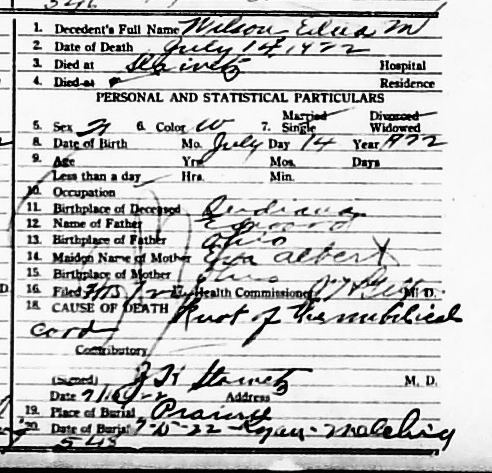 1. Decedent's Full Name Wilson Edna M
2. Date of Death July 14, 1922
3. Died at Hospital
4. Died at Residence
PERSONAL AND STATISTICAL PARTICULARS
Married Divorced
5. Sex F 6. Color W 7. Single Widowed
8. Date of Birth Mo. July Day 14 Year 1922
9. Age Yrs. Mos. Days
Less than a day Hrs. Min.
10. Occupation
11. Birthplace of Deceased Indiana
12. Name of Father Edward
13. Birthplace of Father Ohio
14. Maiden Name of Mother Eva Albert
15. Birthplace of Mother Ohio
16. Filed 17. Health Commissioner M. D.
18. CAUSE OF DEATH Knot of the umbilical
cord
Contributory
(Signed) M. D.
Date Address
19. Place of Burial Prairie
20. Date of Burial 7-15-22 Ryan-
548